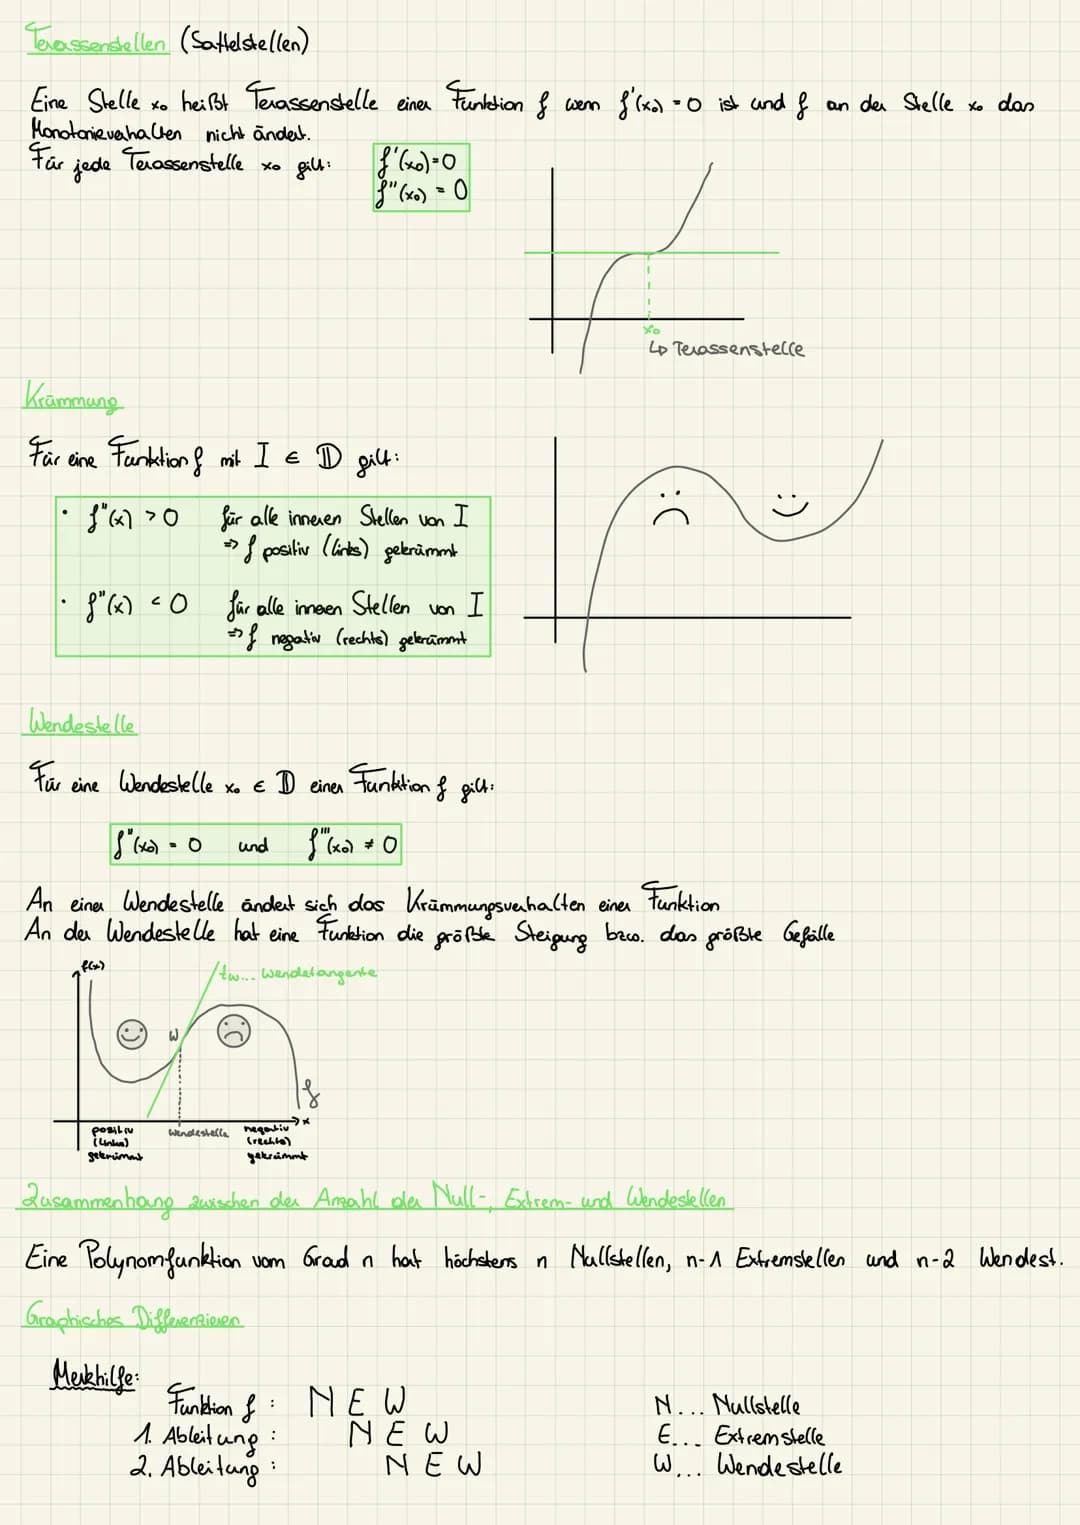 Terassenstellen (Sattelstellen)
Eine Stelle x₀ heißt Terassenstelle einer Funktion f wenn f'(x₀) = 0 ist und f an der Stelle x₀ das
Monotonieverhalten nicht ändert.
Für jede Terassenstelle x₀ gilt: f'(x₀) = 0
f''(x₀) = 0
x₀
↳ Terassenstelle
Krümmung
Für eine Funktion f mit I ∈ 𝔻 gilt:
• f''(x) > 0 für alle inneren Stellen von I
=> f positiv (links) gekrümmt
• f''(x) < 0 für alle inneren Stellen von I
=> f negativ (rechts) gekrümmt
Wendestelle
Für eine Wendestelle x₀ ∈ 𝔻 einer Funktion f gilt:
f''(x₀) = 0 und f'''(x₀) ≠ 0
An einer Wendestelle ändert sich das Krümmungsverhalten einer Funktion
An der Wendestelle hat eine Funktion die größte Steigung bzw. das größte Gefälle
f(x)
tw... Wendetangente
W
f
x
positiv
(links)
gekrümmt
Wendestelle
negativ
(rechts)
gekrümmt
Zusammenhang zwischen der Anzahl der Null-, Extrem- und Wendestellen
Eine Polynomfunktion vom Grad n hat höchstens n Nullstellen, n-1 Extremstellen und n-2 Wendest.
Graphisches Differenzieren
Merkhilfe:
Funktion f : N E W N... Nullstelle
1. Ableitung : N E W E... Extremstelle
2. Ableitung : N E W W... Wendestelle